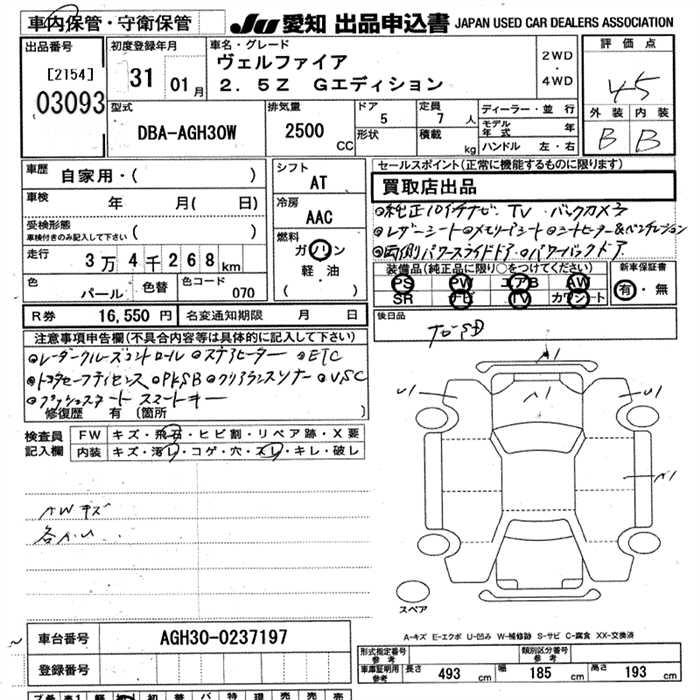 車内保管・守衛保管
JU 愛知 出品申込書 JAPAN USED CAR DEALERS ASSOCIATION
出品番号
[2154]
03093
初度登録年月
31 01月
車名・グレード
ヴェルファイア
2.5Z Gエディション
2WD
・
4WD
評価点
4.5
外装 内装
B B
型式
DBA-AGH30W
排気量
2500 CC
ドア
5
形状
定員
7 人
積載 kg
ディーラー・並行
モデル年式 年
ハンドル 左・右
車歴
自家用・( )
車検 年 月( 日)
受検形態
車検付きのみ記入して下さい ( )
走行
3万4千268km
色
パール
色替
色コード
070
シフト
AT
冷房
AAC
燃料
ガソリン
軽・油
( )
セールスポイント(正常に機能するものに限ります)
買取店出品
◎純正10インチナビ TV バックカメラ
◎レザーシート ◎メモリーシート ◎シートヒーター&ベンチレーション
◎両側パワースライドドア ◎パワーバックドア
装備品(純正品に限り○をつけてください)
PS PW エアB AW
SR ナビ TV カワシート
新車保証書
有・無
R券 16,550円
名変通知期限 月 日
後日品
注意事項申告欄(不具合内容等は具体的に記入して下さい)
◎レーダークルーズコントロール ◎ステアヒーター ◎ETC
◎トヨタセーフティセンス ◎PKSB ◎クリアランスソナー ◎VSC
◎プッシュスタート スマートキー
修復歴 有 (箇所 )
検査員
記入欄
FW キズ・飛石・ヒビ割・リペア跡・X要
内装 キズ・汚レ・コゲ・穴・スレ・キレ・破レ
AWキズ
A1
A1
U1
U1
A1
スペア
A-キズ E-エクボ U-凹み W-補修跡 S-サビ C-腐食 XX-交換済
車台番号 AGH30-0237197
登録番号
形式指定番号
参考
類別区分番号
参考
車庫証明用
参考
長さ 493 cm
幅 185 cm
高さ 193 cm